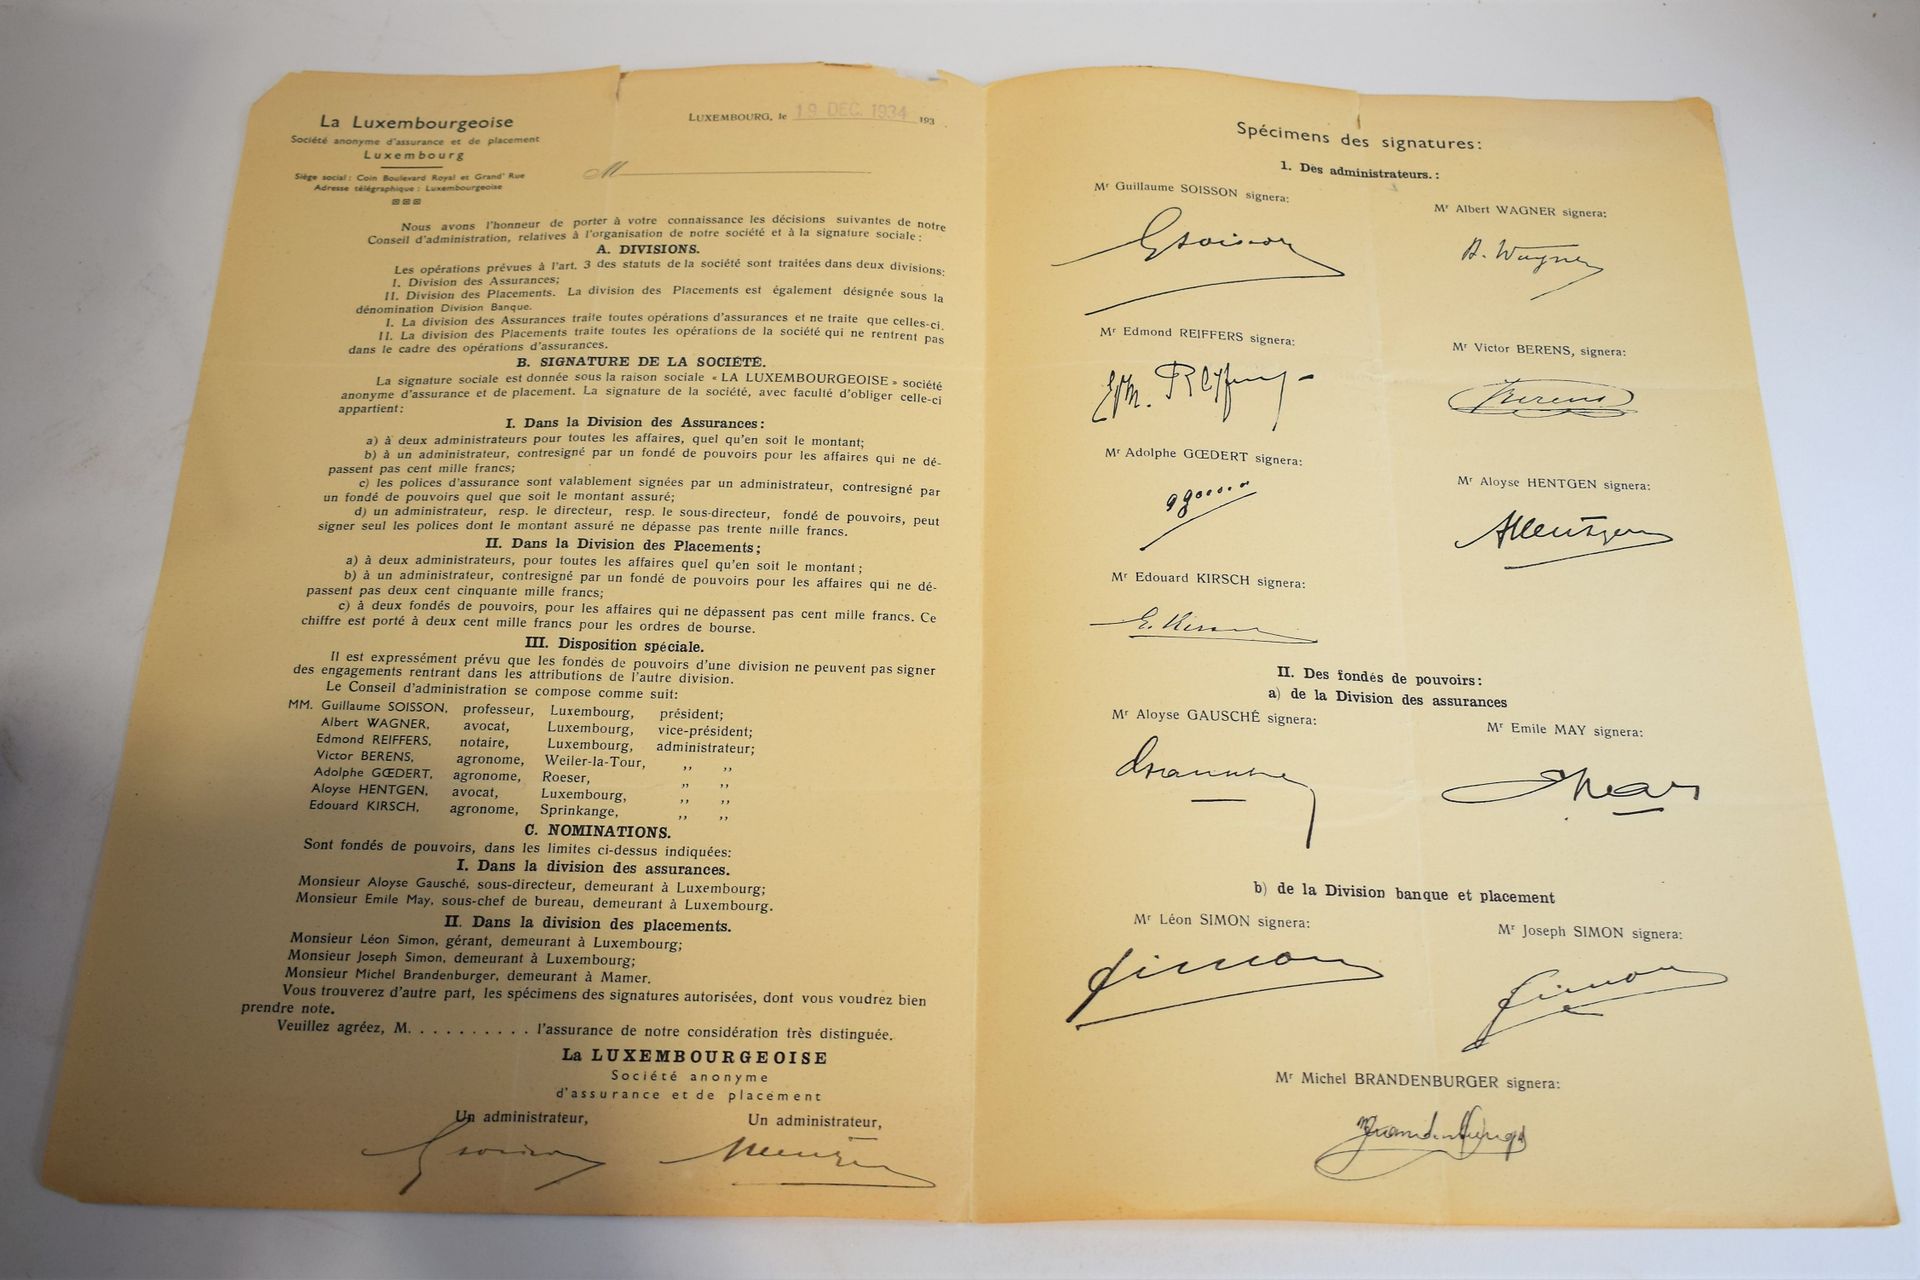 La Luxembourgeoise
Société anonyme d'assurance et de placement
Luxembourg
Siège social : Coin Boulevard Royal et Grand' Rue
Adresse télégraphique : Luxembourgeoise
LUXEMBOURG, le 19 DEC. 1934 193
M
Nous avons l'honneur de porter à votre connaissance les décisions suivantes de notre
Conseil d'administration, relatives à l'organisation de notre société et à la signature sociale :
A. DIVISIONS.
Les opérations prévues à l'art. 3 des statuts de la société sont traitées dans deux divisions:
I. Division des Assurances;
II. Division des Placements. La division des Placements est également désignée sous la
dénomination Division Banque.
I. La division des Assurances traite toutes opérations d'assurances et ne traite que celles-ci.
II. La division des Placements traite toutes les opérations de la société qui ne rentrent pas
dans le cadre des opérations d'assurances.
B. SIGNATURE DE LA SOCIÉTÉ.
La signature sociale est donnée sous la raison sociale « LA LUXEMBOURGEOISE » société
anonyme d'assurance et de placement. La signature de la société, avec faculté d'obliger celle-ci
appartient:
I. Dans la Division des Assurances:
a) à deux administrateurs pour toutes les affaires, quel qu'en soit le montant;
b) à un administrateur, contresigné par un fondé de pouvoirs pour les affaires qui ne dé-
passent pas cent mille francs;
c) les polices d'assurance sont valablement signées par un administrateur, contresigné par
un fondé de pouvoirs quel que soit le montant assuré;
d) un administrateur, resp. le directeur, resp. le sous-directeur, fondé de pouvoirs, peut
signer seul les polices dont le montant assuré ne dépasse pas trente mille francs.
II. Dans la Division des Placements;
a) à deux administrateurs, pour toutes les affaires quel qu'en soit le montant;
b) à un administrateur, contresigné par un fondé de pouvoirs pour les affaires qui ne dé-
passent pas deux cent cinquante mille francs;
c) à deux fondés de pouvoirs, pour les affaires qui ne dépassent pas cent mille francs. Ce
chiffre est porté à deux cent mille francs pour les ordres de bourse.
III. Disposition spéciale.
Il est expressément prévu que les fondés de pouvoirs d'une division ne peuvent pas signer
des engagements rentrant dans les attributions de l'autre division.
Le Conseil d'administration se compose comme suit:
MM. Guillaume SOISSON, professeur, Luxembourg, président;
Albert WAGNER, avocat, Luxembourg, vice-président;
Edmond REIFFERS, notaire, Luxembourg, administrateur;
Victor BERENS, agronome, Weiler-la-Tour, ,, ,,
Adolphe GŒDERT, agronome, Roeser, ,, ,,
Aloyse HENTGEN, avocat, Luxembourg, ,, ,,
Edouard KIRSCH, agronome, Sprinkange, ,, ,,
C. NOMINATIONS.
Sont fondés de pouvoirs, dans les limites ci-dessus indiquées:
I. Dans la division des assurances.
Monsieur Aloyse Gausché, sous-directeur, demeurant à Luxembourg;
Monsieur Emile May, sous-chef de bureau, demeurant à Luxembourg.
II. Dans la division des placements.
Monsieur Léon Simon, gérant, demeurant à Luxembourg;
Monsieur Joseph Simon, demeurant à Luxembourg;
Monsieur Michel Brandenburger, demeurant à Mamer.
Vous trouverez d'autre part, les spécimens des signatures autorisées, dont vous voudrez bien
prendre note.
Veuillez agréez, M. . . . . . . . . . . l'assurance de notre considération très distinguée.
La LUXEMBOURGEOISE
Société anonyme
d'assurance et de placement
Un administrateur, Un administrateur,
Gsoisson
Spécimens des signatures:
1. Des administrateurs.:
Mr Guillaume SOISSON signera: Mr Albert WAGNER signera:
Gsoisson A. Wagner
Mr Edmond REIFFERS signera: Mr Victor BERENS, signera:
Edm. Reiffers Berens
Mr Adolphe GŒDERT signera: Mr Aloyse HENTGEN signera:
AHentgen
Mr Edouard KIRSCH signera:
E. Kirsch
II. Des fondés de pouvoirs:
a) de la Division des assurances
Mr Aloyse GAUSCHÉ signera: Mr Emile MAY signera:
b) de la Division banque et placement
Mr Léon SIMON signera: Mr Joseph SIMON signera:
Simon Simon
Mr Michel BRANDENBURGER signera: